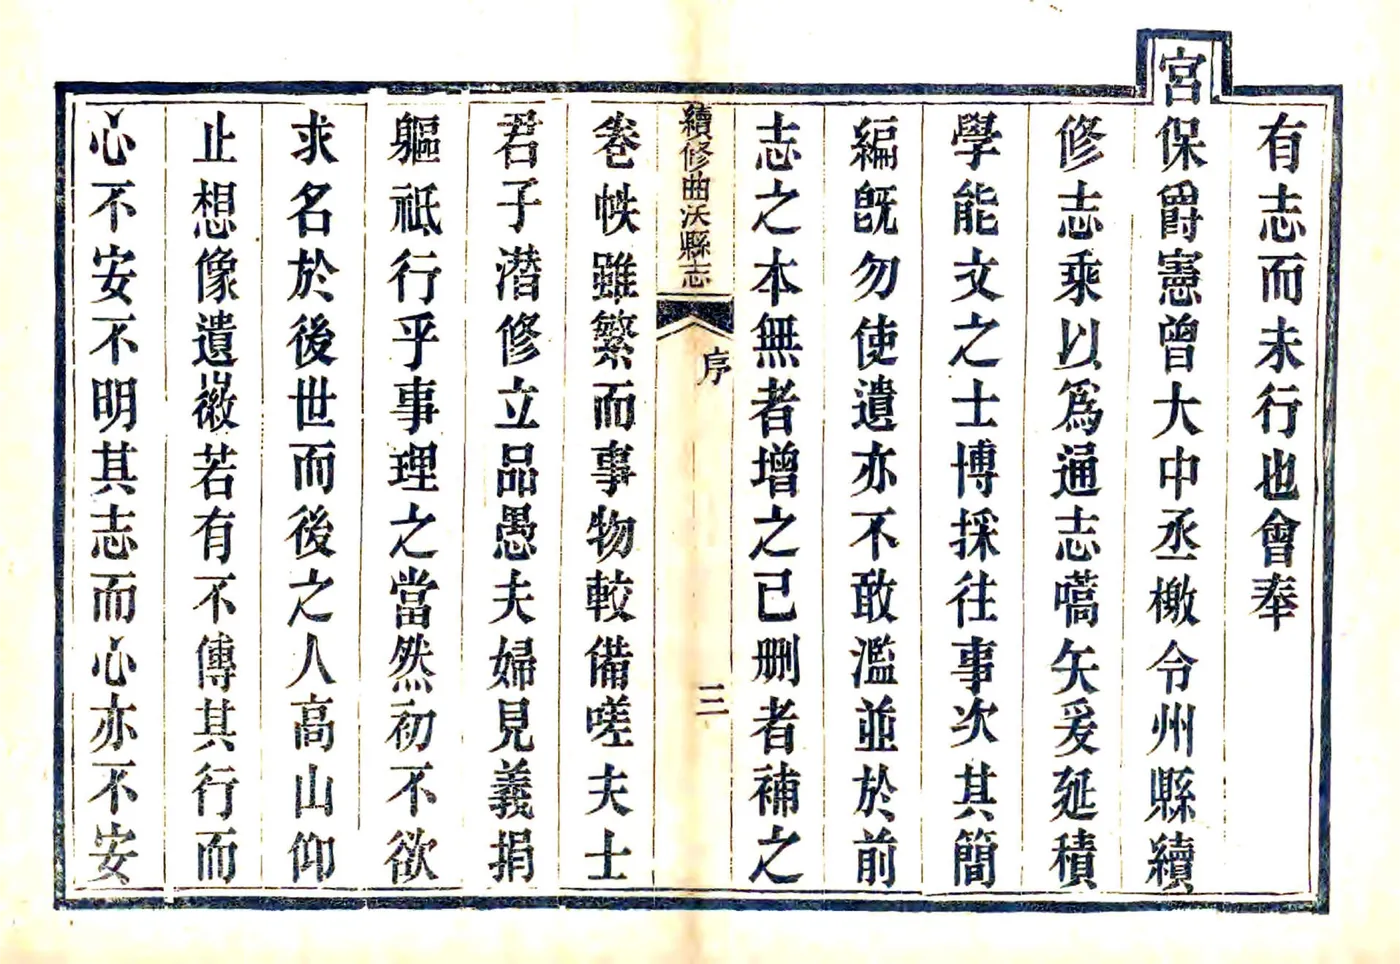 有志而未行也會奉
宮保爵憲曾大中丞檄令州縣續
修志乘以爲通志嚆矢爰延積
學能文之士博採往事次其簡
編旣勿使遺亦不敢濫並於前
志之本無者增之已删者補之
續修曲沃縣志
序
三
卷帙雖繁而事物較備嗟夫士
君子潜修立品愚夫婦見義捐
軀祗行乎事理之當然初不欲
求名於後世而後之人高山仰
止想像遺徽若有不傳其行而
心不安不明其志而心亦不安